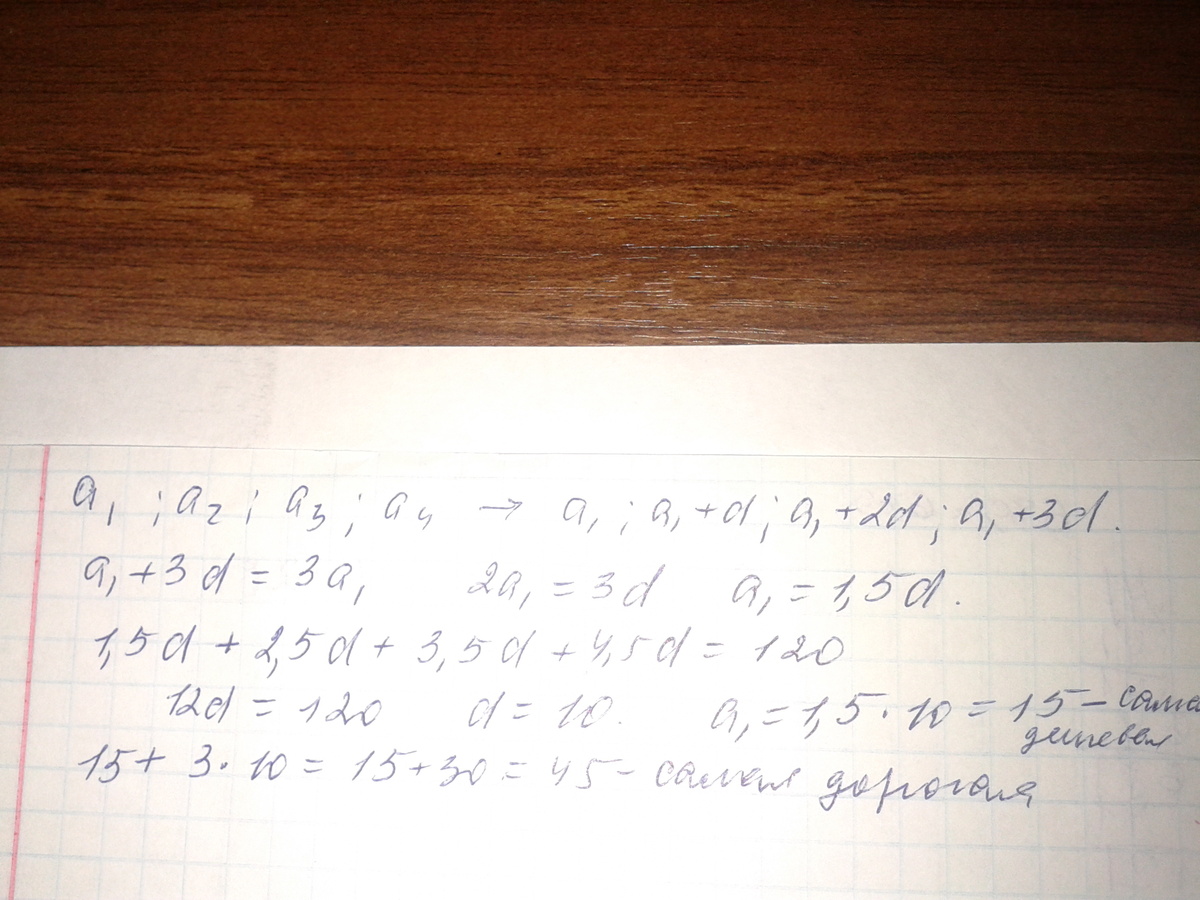 a₁ ; a₂ ; a₃ ; a₄ → a₁ ; a₁ + d ; a₁ + 2d ; a₁ + 3d .
a₁ + 3d = 3a₁ 2a₁ = 3d a₁ = 1,5d .
1,5d + 2,5d + 3,5d + 4,5d = 120
12d = 120 d = 10. a₁ = 1,5 · 10 = 15 – сама
дешевая
15 + 3 · 10 = 15 + 30 = 45 – самая дорогая